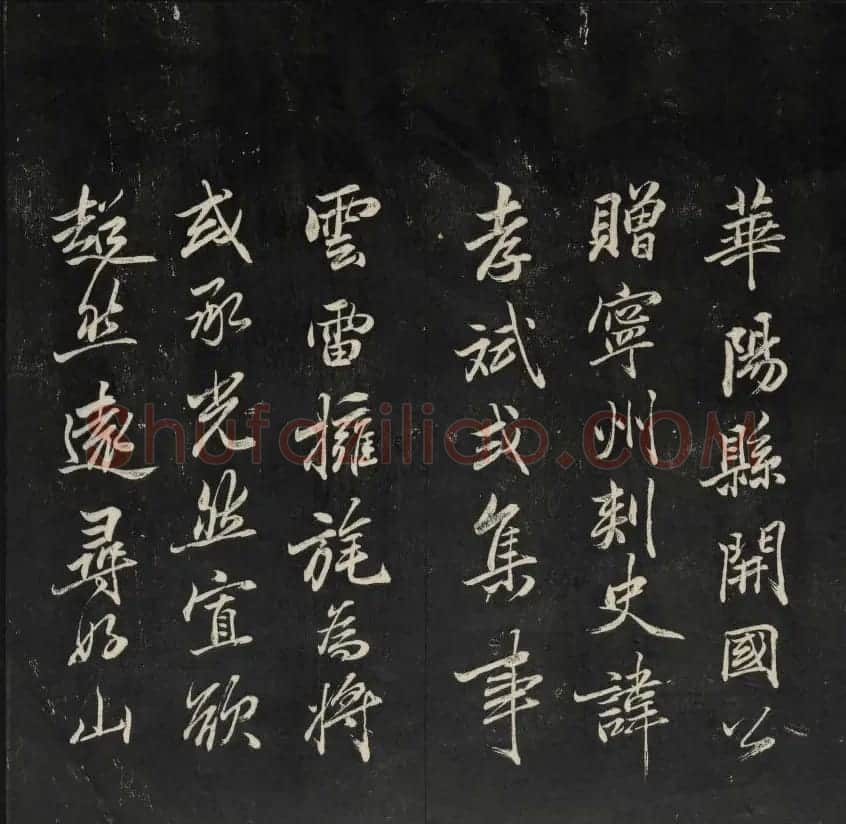 華陽縣開國公
贈寧州刺史諱
孝斌或集事
雲雷擁旄為將
或承光然宦欲
超然遠尋好山
shufaziliao.COM